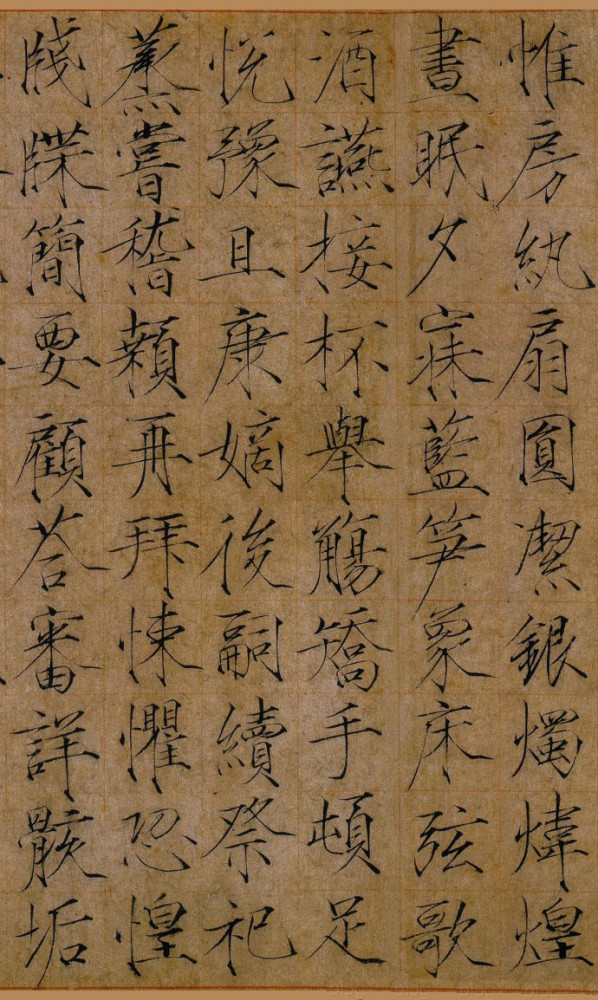 惟房紈扇圓潔銀燭煒煌
晝眠夕寐藍笋象床弦歌
酒讌接杯舉觴矯手頓足
悅豫且康嫡後嗣續祭祀
蒸嘗稽顙再拜悚懼恐惶
牋牒簡要顧荅審詳骸垢